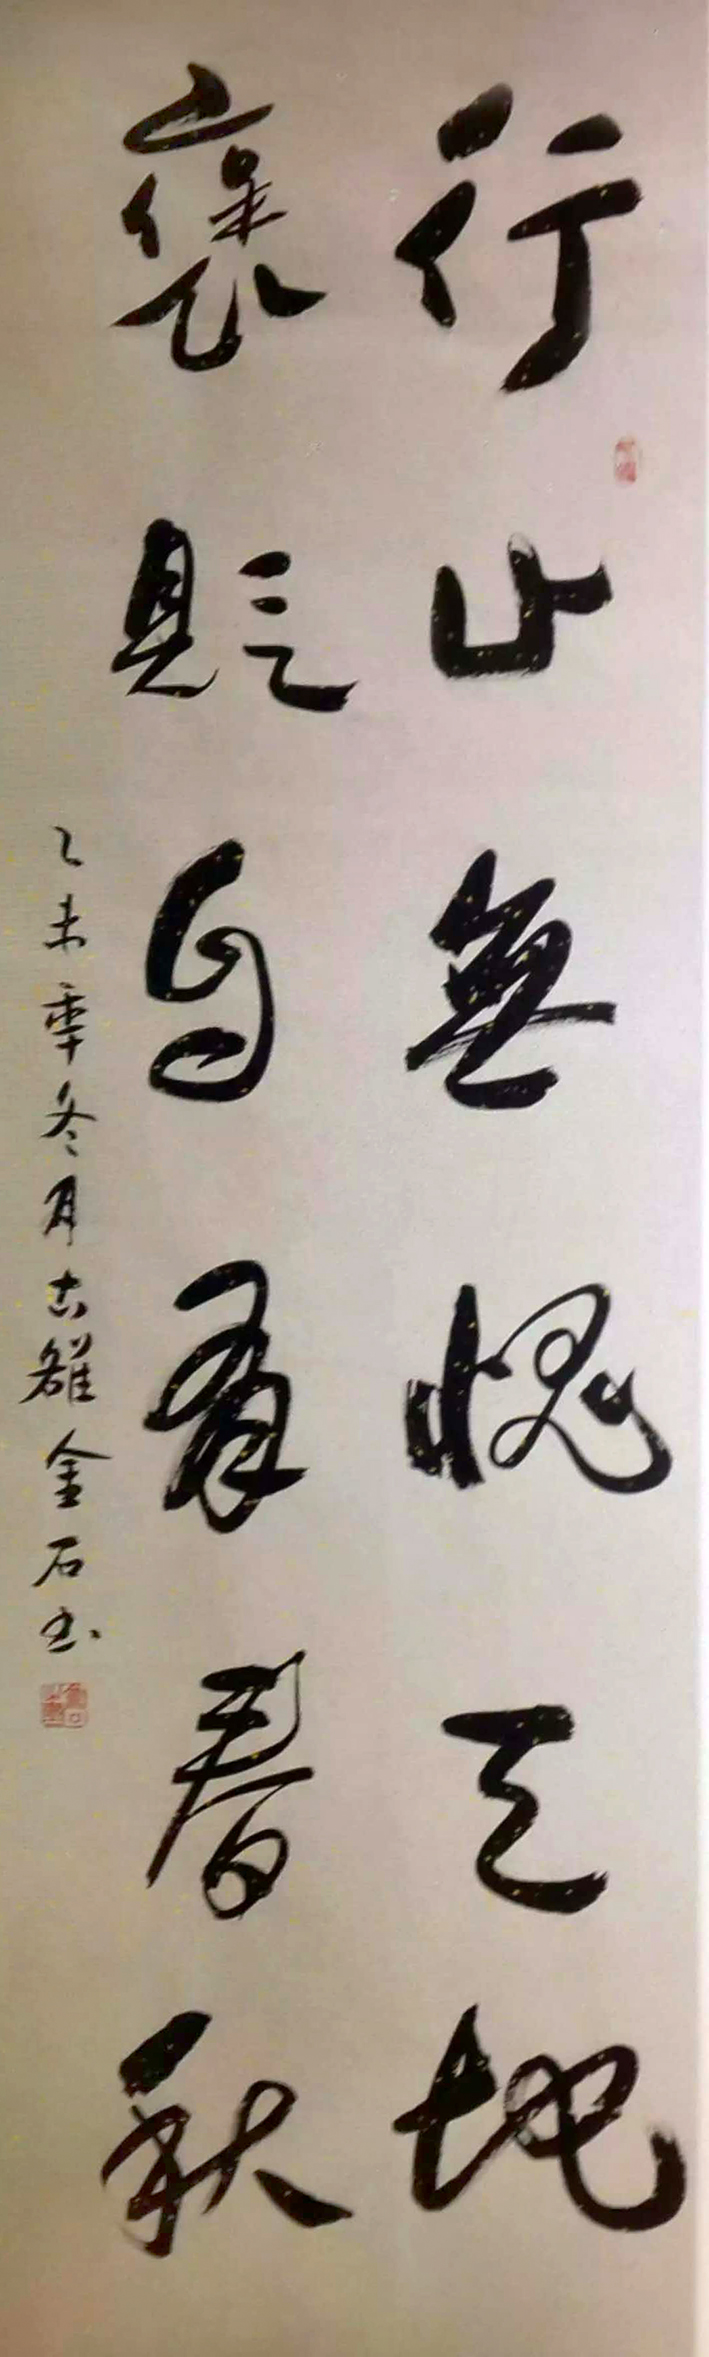 行止無愧天地
褒貶自有春秋
乙未年冬月古雒金石书